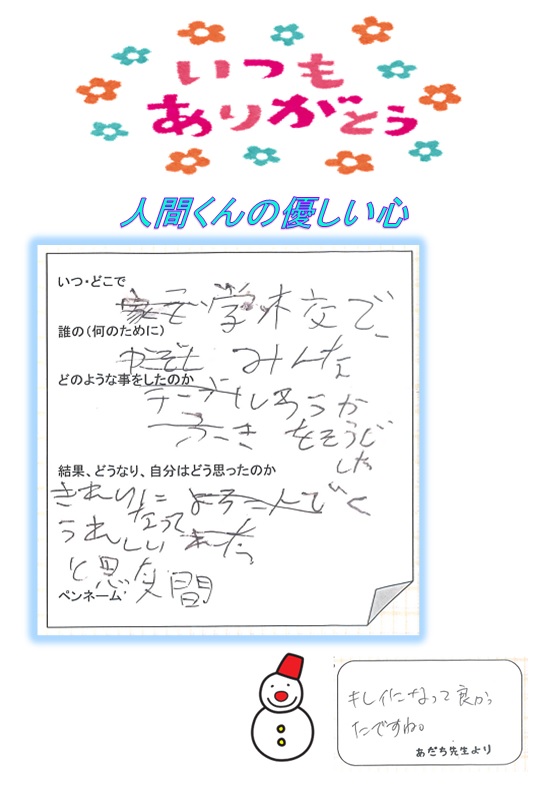 いつも
ありがとう
人間くんの優しい心
いつ・どこで
家で 学校で
誰の(何のために)
かぞく みんな
どのような事をしたのか
テーブル しょうか
ふき をそうじ
した
結果、どうなり、自分はどう思ったのか
きれいに よろこんで
なって
うれしい
と思
ペンネーム 人間
キレイになって良かっ
たですね。
あだち先生より